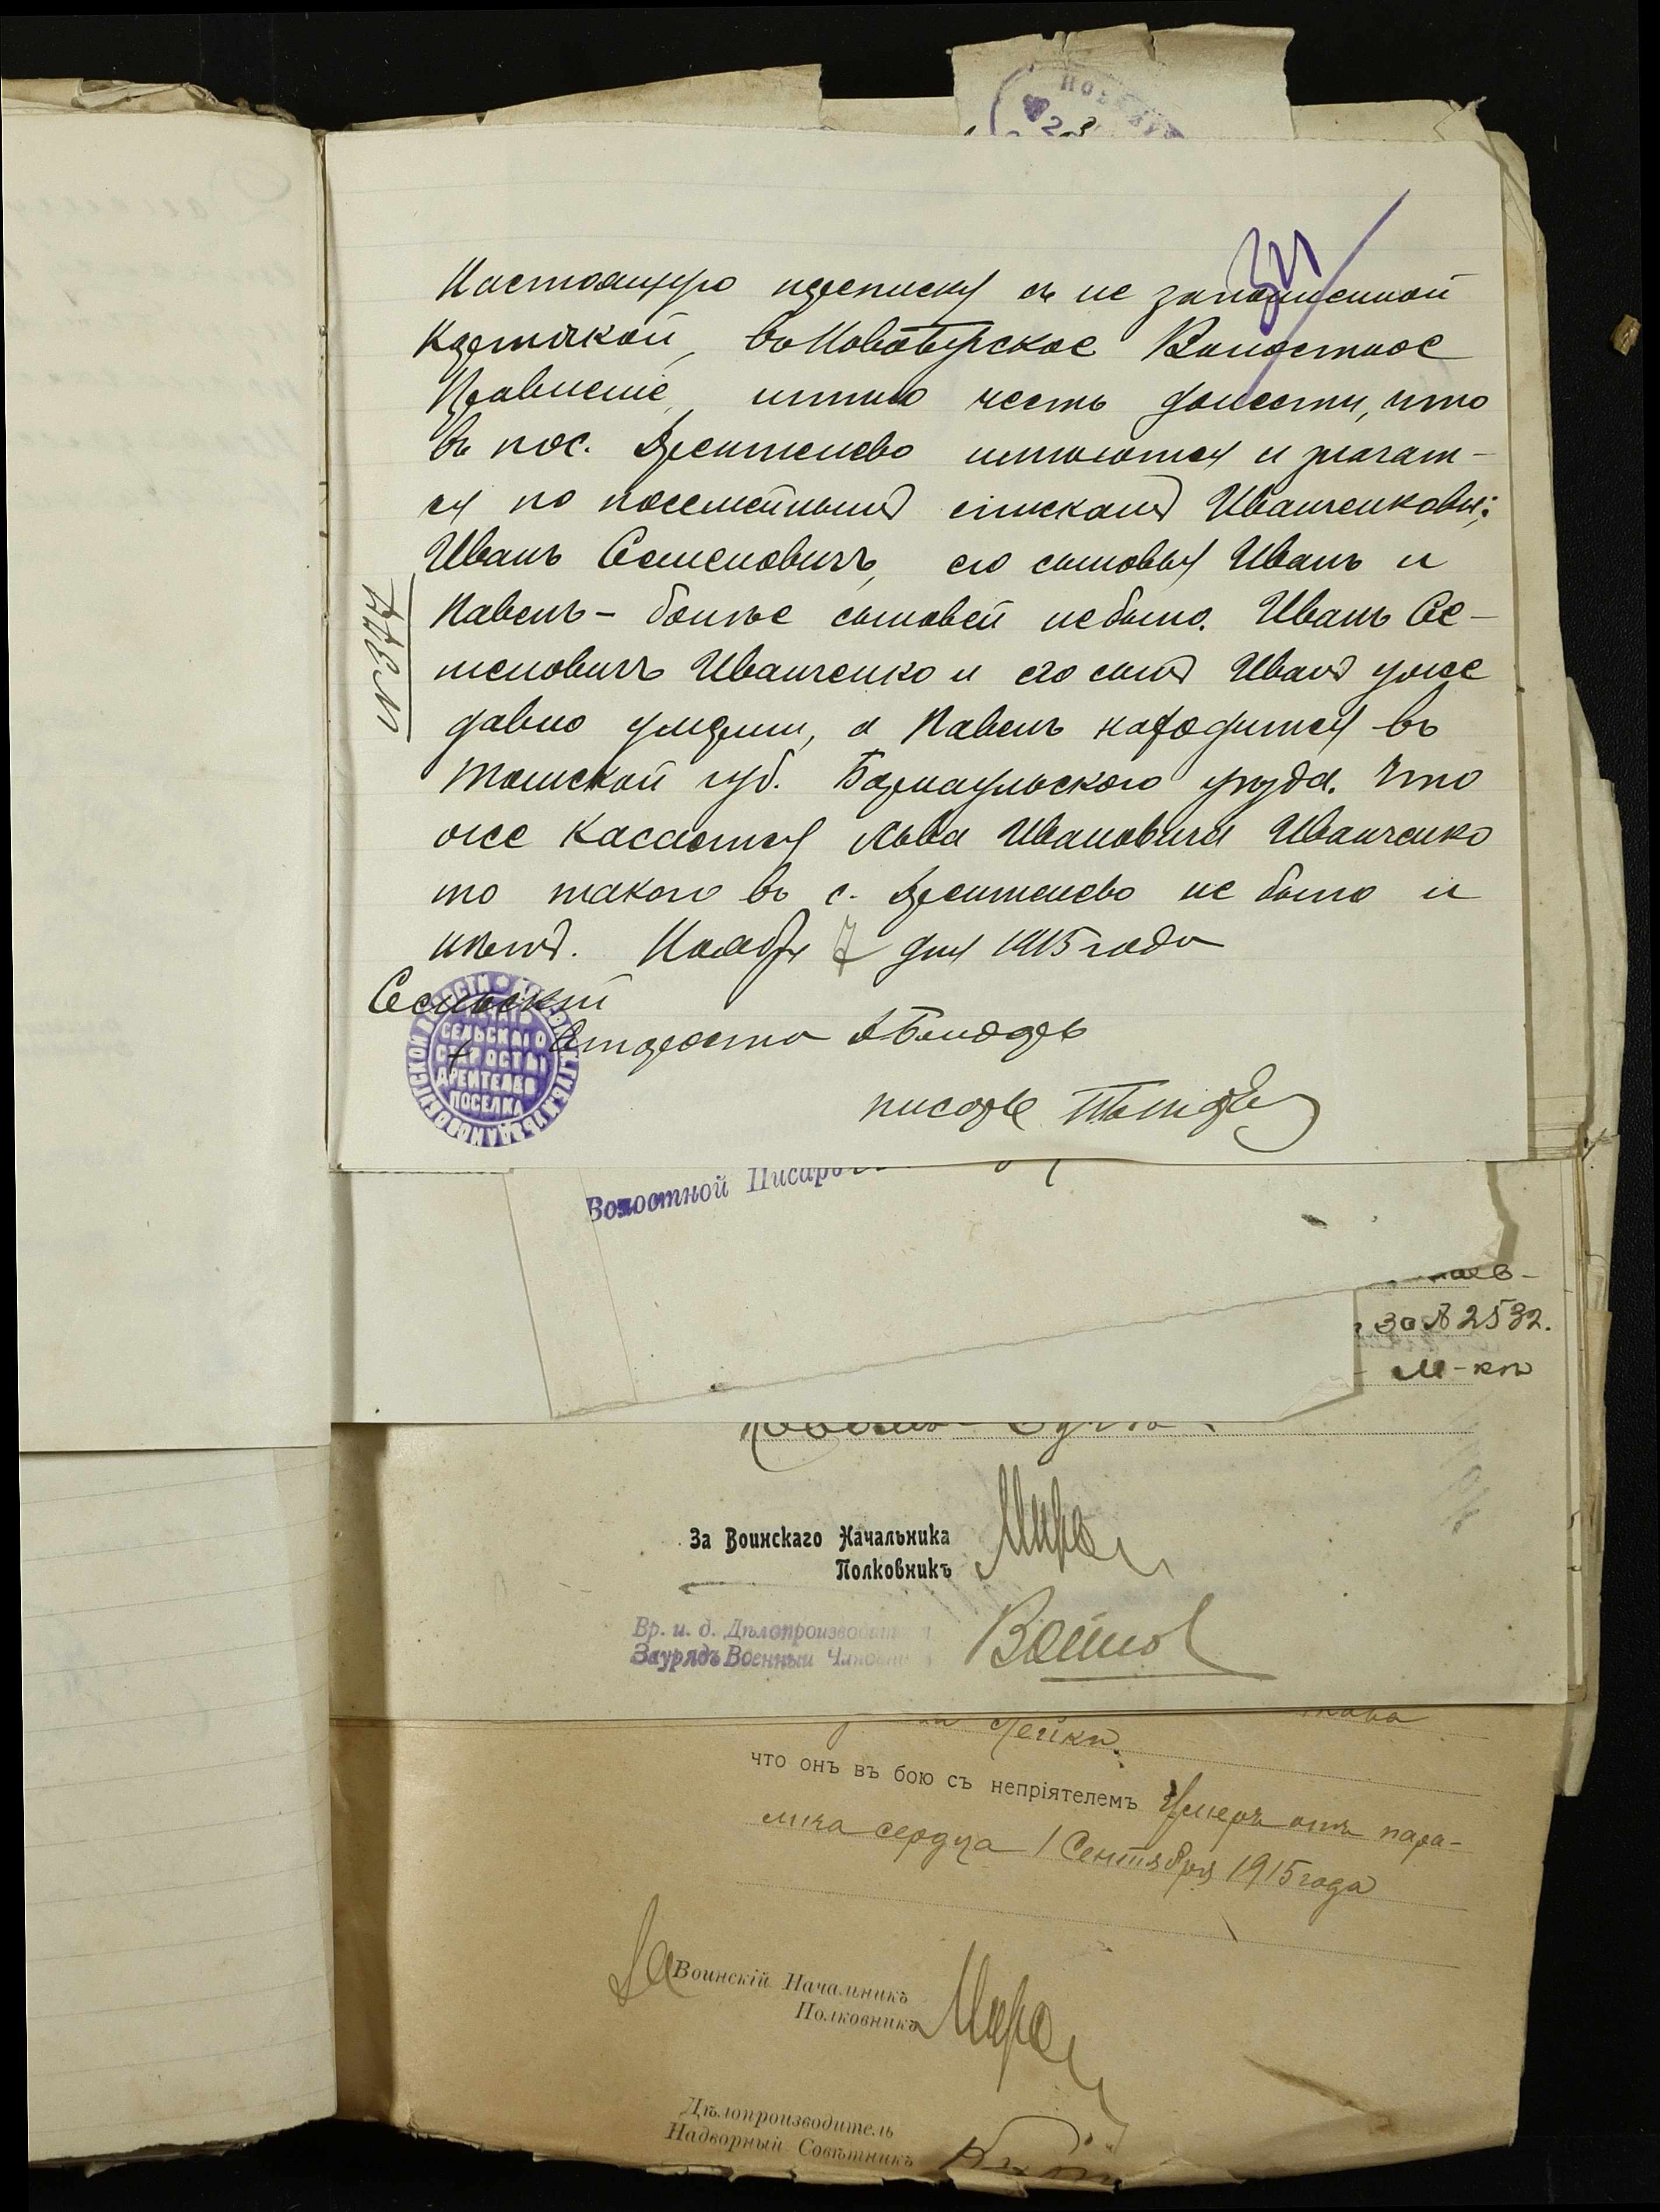 НОВ
23
31
Настоящую переписку съ не заполненной
карточкой, въ Новобугское Волостное
Правленіе, имѣю честь донести, что
въ пос. Дрейтелево имѣются и значат-
ся по посемейнымъ спискамъ Иванченковы:
Иванъ Семеновичъ, его сыновья Иванъ и
Павелъ – болѣе сыновей не было. Иванъ Се-
меновичъ Иванченко и его сынъ Иванъ уже
давно умерли, а Павелъ находится въ
Томской губ. Барнаульского уѣзда. Что
же касается Льва Ивановича Иванченко
то такого въ с. Дрейтелево не было и
нѣтъ. Ноября 7 дня 1915 года
№ 377
Сельскій
Староста
СЕЛЬСКАГО
СТАРОСТЫ
ПОСЕЛКА
писарь
Волостной Писарь
за № 2532.
М-кп
За Воинскаго Начальника
Полковникъ
Вр. и. д. Дѣлопроизводителя
Заурядъ Военный Чиновникъ
что онъ въ бою съ непріятелемъ Умеръ отъ пара-
лича сердца 1 Сентября 1915 года
За Воинскій Начальникъ
Полковникъ
Дѣлопроизводитель
Надворный Совѣтникъ